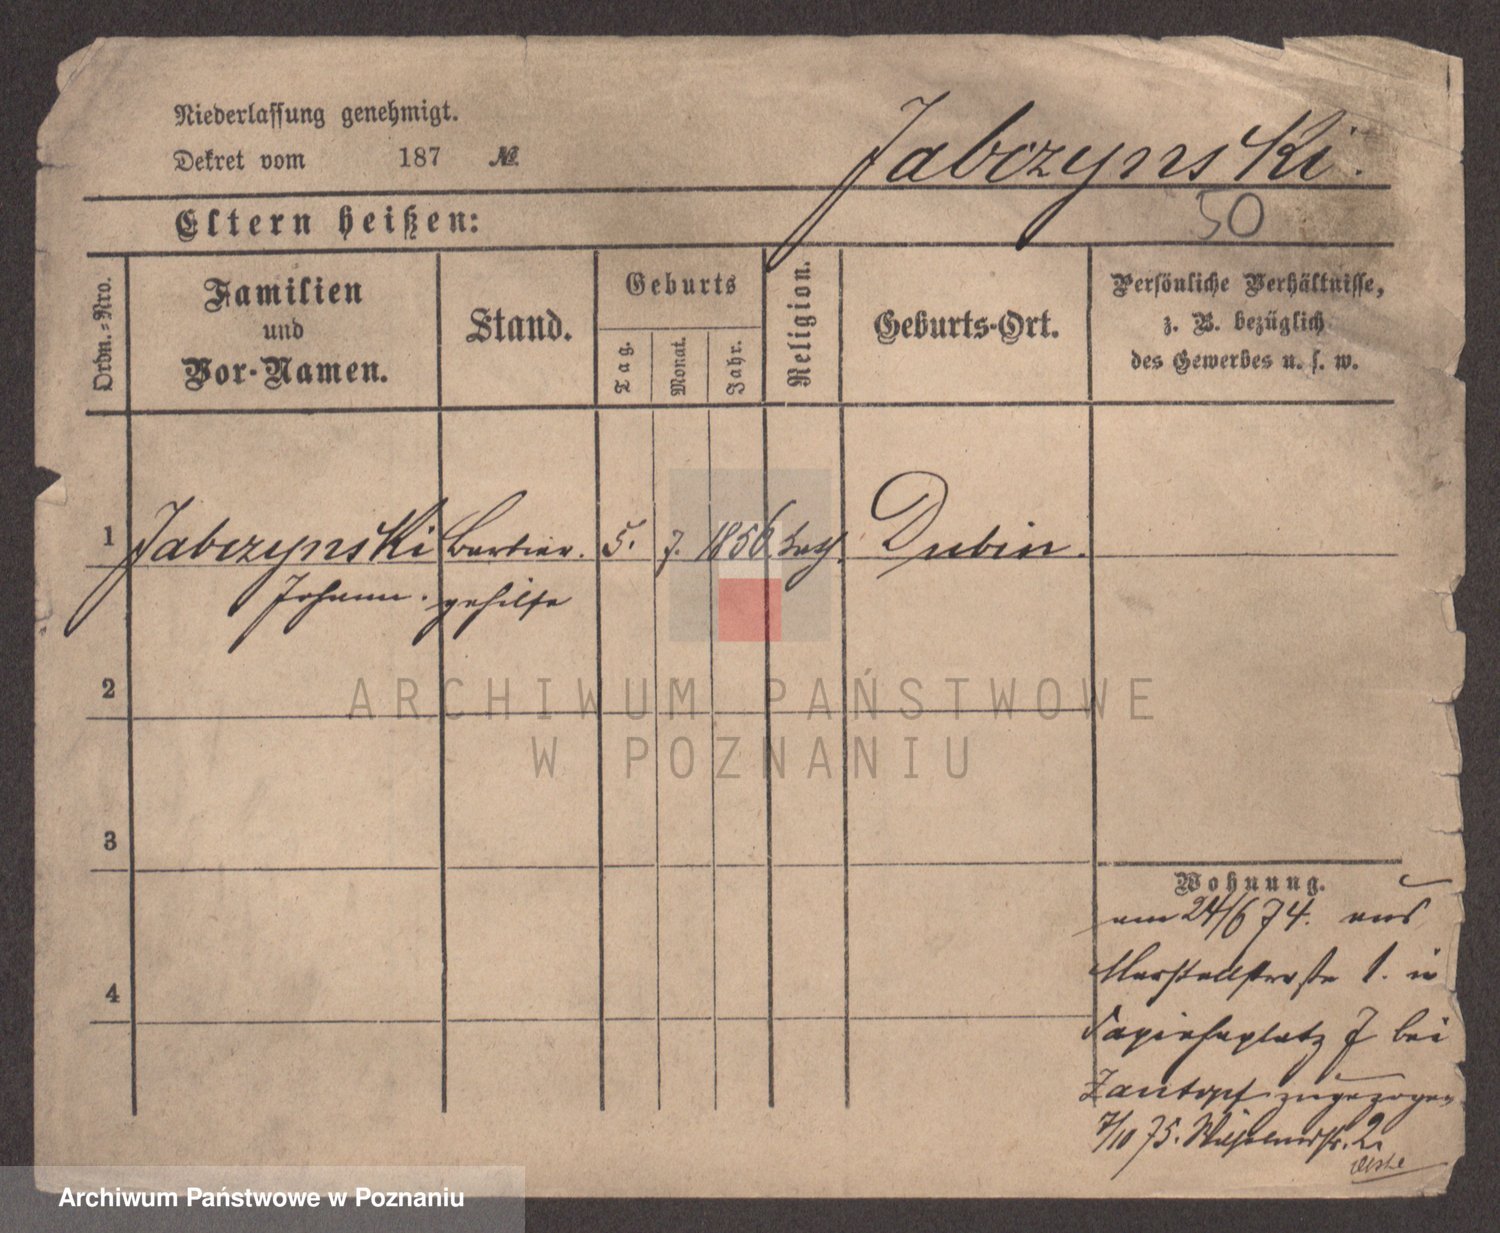 Niederlassung genehmigt.
Dekret vom 187 №
Jabczynski.
50
Eltern heißen:
Ordn.-Nro.
Familien
und
Vor-Namen.
Stand.
Geburts
Tag.
Monat.
Jahr.
Religion.
Geburts-Ort.
Persönliche Verhältnisse,
z. B. bezüglich
des Gewerbes u. s. w.
1 Jabczynski Barbier. 5. 7. 1856 kath. Dubin.
Johann. gehilfe
2
ARCHIWUM PAŃSTWOWE
W POZNANIU
3
4
Wohnung.
am 24/6 74. aus
Marstallstraße 1. in
Sapiehaplatz 7 bei
zugezogen
7/10 75. Wilhelmstr. 2.
Archiwum Państwowe w Poznaniu